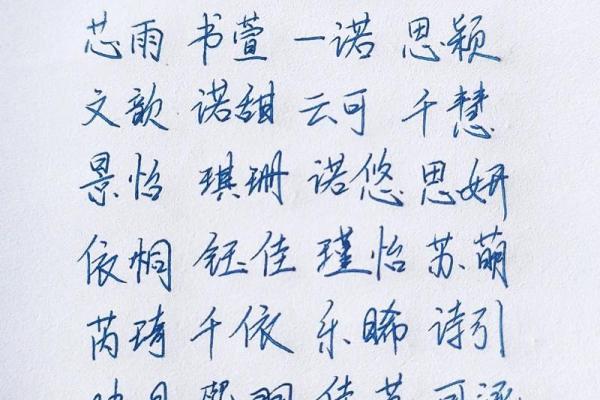 芯雨 书萱 一诺 思颖
文歆 诺甜 云可 千慧
景怡 琪珊 诺悠 思妍
依桐 钰佳 瑾怡 苏萌
芮琦 千依 乐晞 诗引